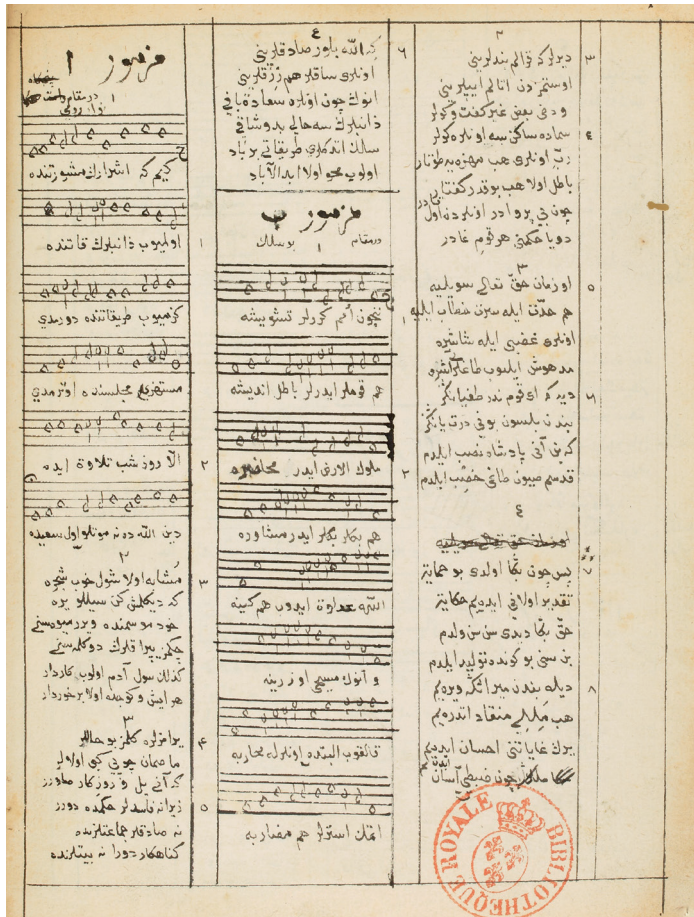 مزمور ا
در مقام
كيم كه اشرارك مشورتنده
اولميوب ذانبلرك قاتنده
١
كزميوب طريقاتنده دورمدي
مستهزيلر مجلسنده اوترمدي
الا روز شب تلاوة ايده
٢
دين الله ده نه موتلو اول سعيده
٢
مشابه اولا شول خوب شجره
٣
كه ديكلمش كن سيللو يره
خود موسمنده ويرر ميوه سني
چكمز يپراقلرك دوكلمه سني
كذلك سول آدم اولوب كاردار
هر ايش وكوجده اولا برخوردار
٣
يرامزلره كلمز بو حاللر
۴
ما صمان چوپي كبي اولالر
كه آني يل روزكار صاوورر
زيرا نه فاسدلر حكمده دورر
٥
نه صادقلر جماعتلرنده
كناهكار دورا نه بيتلرنده
٤
كه الله بلور صادقلريني
٦
اونلري ساقلر هم رزقلريني
انوك چون اونلره سعادة باقي
ذانبلرك سه حالي بدو شاقي
سلك اتدكلري طريقاتي برباد
اولوب محو اولا ابد الآباد
مزمور ب
در مقام بوسلك
ا
نيچون امم كررلر تشويشه
١
هم قوملر ايدرلر باطل انديشه
ملوك الارض ايدر محاضره
٢
هم بكلر بكلر ايدر مشاوره
اللهه عداوة ايدوب هم كينه
و آنوك مسيحي اوزرينه
قالقوب البتده اونلرله محاربه
اتمك استرلر هم مضاربه
٢
ديرلر كه قرالم بندلريني
٣
اوستمزدن اتالم ايپلريني
ودخي بعض غير كفت وكولر
سماده ساكن سه اونلره كولر
٤
رب اونلري هب مهزه يه طوتار
باطل اولا هب بو قدر كفتار
چون بي پروا در اونلردن اول در
دويا حكمني هر قوم غادر
٣
اوزمان حق تعالى سويليه
٥
هم حدت ايله سرت خطاب ايليه
اونلري غضبي ايله شاشيره
مدهوش ايليوب
ديه كه اي قوم ندر طغيانكز
٦
بندن بلسون بوني
كه بن آني پادشاه نصب ايلدم
قدسم صيون طاغي
٤
پس چون بكا اولدي بو حمايتز
٧
تقدير اولاني ايده يم حكايتز
حق بكا ديدي سن سن ولدم
بن سني بو كونده توليد ايلدم
ديله بندن ميراثكه ويره يم
٨
هب مللي منقاد اندره يم
يرك غاياتني احسان ايده يم
چون ضبطي آسان ايده يم
BIBLIOTHEQUE ROYALE